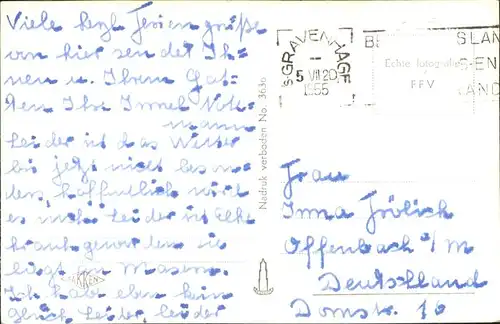 Viele herzl Feriengrüße
von hier sendet Ih-
nen u. Ihrem Gat-
ten Ihre Immel Volk-
mann
Leider ist das Wetter
bis jetzt nicht beson-
ders, hoffentlich wird
es noch. Leider ist Elke
krank geworden sie
liegt an Masern.
Ich hab eben kein
Glück leider, leider
Nadruk verboden No. 3636
's-GRAVENHAGE
5 VII 20
1955
SLAN
S-EN
LAND
Echte fotografie
FFV
Frau
Irma Frölich
Offenbach a/M
Deutschland
Domstr. 16